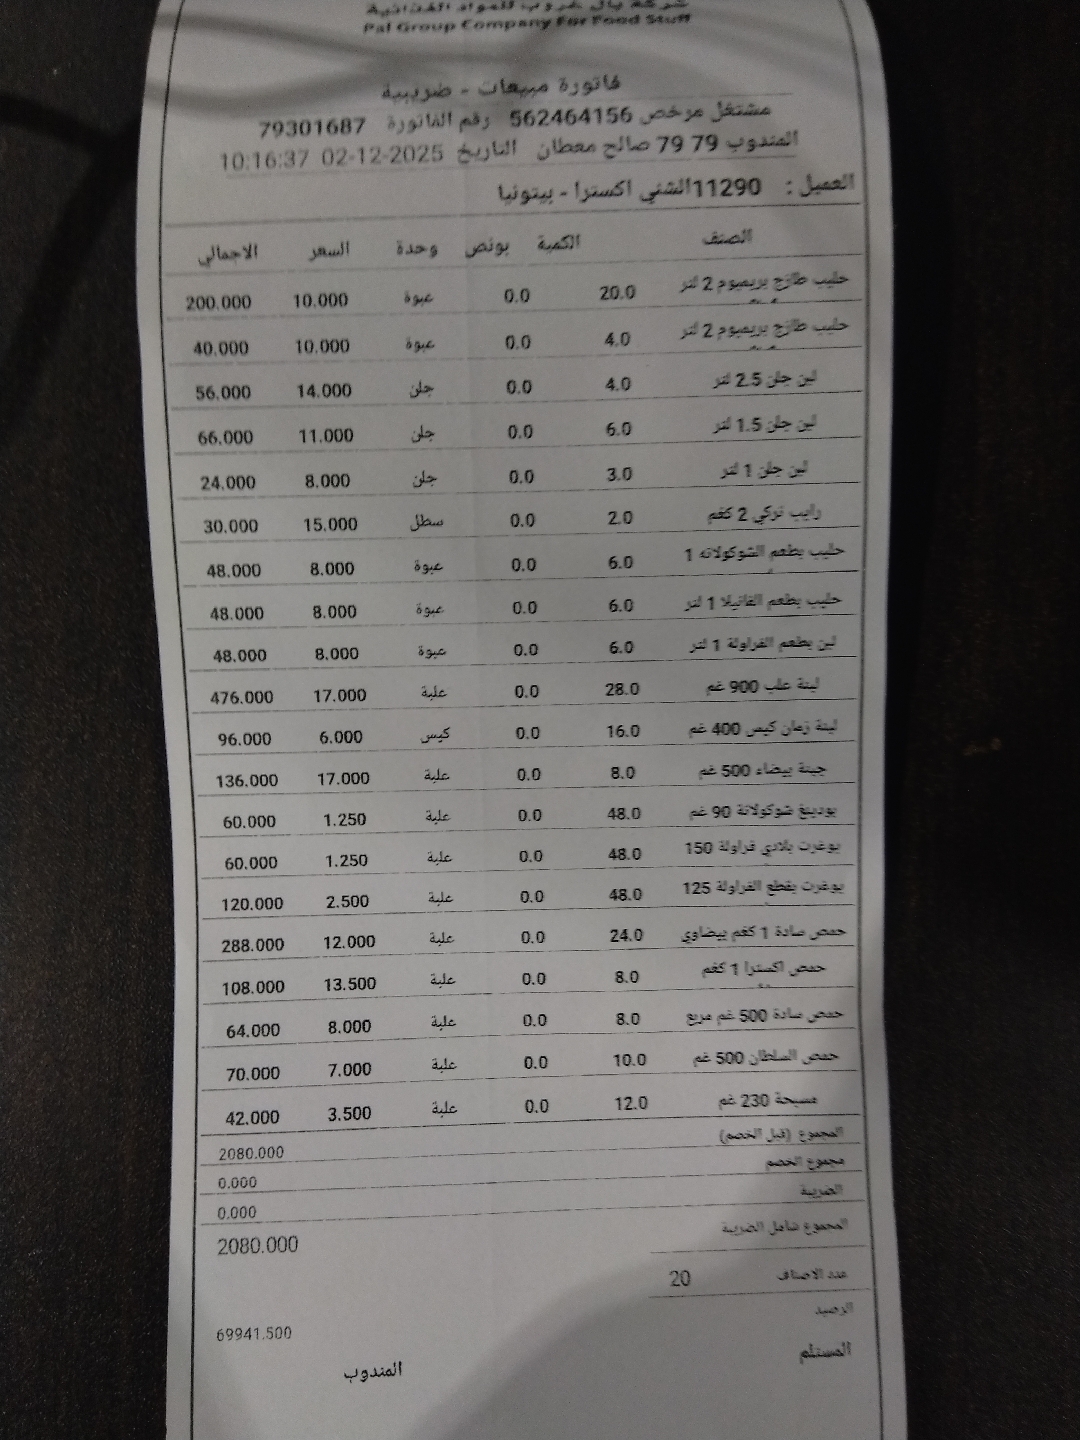 شركة بال غروب للمواد الغذائية
Pal Group Company For Food Stuff
فاتورة مبيعات - ضريبية
مشتغل مرخص 562464156 رقم الفاتورة 79301687
المندوب 79 79 صالح معطان التاريخ 02-12-2025 10:16:37
العميل : 11290الشني اكسترا - بيتونيا
الصنف الكمية بونص وحدة السعر الاجمالي
حليب طازج بريميوم 2 لتر 20.0 0.0 عبوة 10.000 200.000
حليب طازج بريميوم 2 لتر 4.0 0.0 عبوة 10.000 40.000
لبن جلن 2.5 لتر 4.0 0.0 جلن 14.000 56.000
لبن جلن 1.5 لتر 6.0 0.0 جلن 11.000 66.000
لبن جلن 1 لتر 3.0 0.0 جلن 8.000 24.000
رايب تركي 2 كغم 2.0 0.0 سطل 15.000 30.000
حليب بطعم الشوكولاته 1 6.0 0.0 عبوة 8.000 48.000
حليب بطعم الفانيلا 1 لتر 6.0 0.0 عبوة 8.000 48.000
لبن بطعم الفراولة 1 لتر 6.0 0.0 عبوة 8.000 48.000
لبنة علب 900 غم 28.0 0.0 علبة 17.000 476.000
لبنة زمان كيس 400 غم 16.0 0.0 كيس 6.000 96.000
جبنة بيضاء 500 غم 8.0 0.0 علبة 17.000 136.000
بودينغ شوكولاتة 90 غم 48.0 0.0 علبة 1.250 60.000
يوغرت بلادي فراولة 150 48.0 0.0 علبة 1.250 60.000
يوغرت بقطع الفراولة 125 48.0 0.0 علبة 2.500 120.000
حمص سادة 1 كغم بيضاوي 24.0 0.0 علبة 12.000 288.000
حمص اكسترا 1 كغم 8.0 0.0 علبة 13.500 108.000
حمص سادة 500 غم مربع 8.0 0.0 علبة 8.000 64.000
حمص السلطان 500 غم 10.0 0.0 علبة 7.000 70.000
مسبحة 230 غم 12.0 0.0 علبة 3.500 42.000
المجموع (قبل الخصم) 2080.000
مجموع الخصم 0.000
الضريبة 0.000
المجموع شامل الضريبة 2080.000
عدد الاصناف 20
الرصيد 69941.500
المستلم المندوب